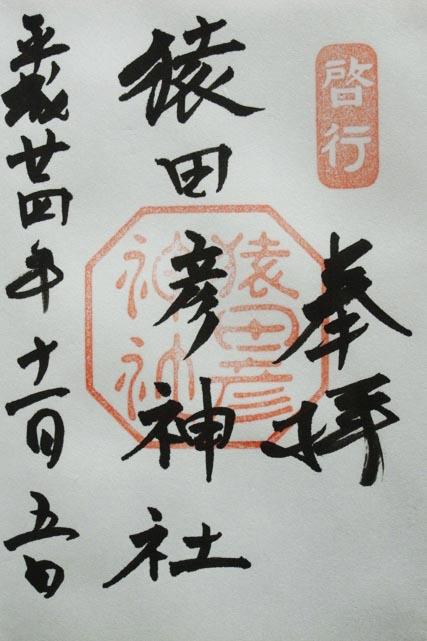 啓行
奉拝
猿田彦神社
猿田彦
神社
平成廿四年十一月五日